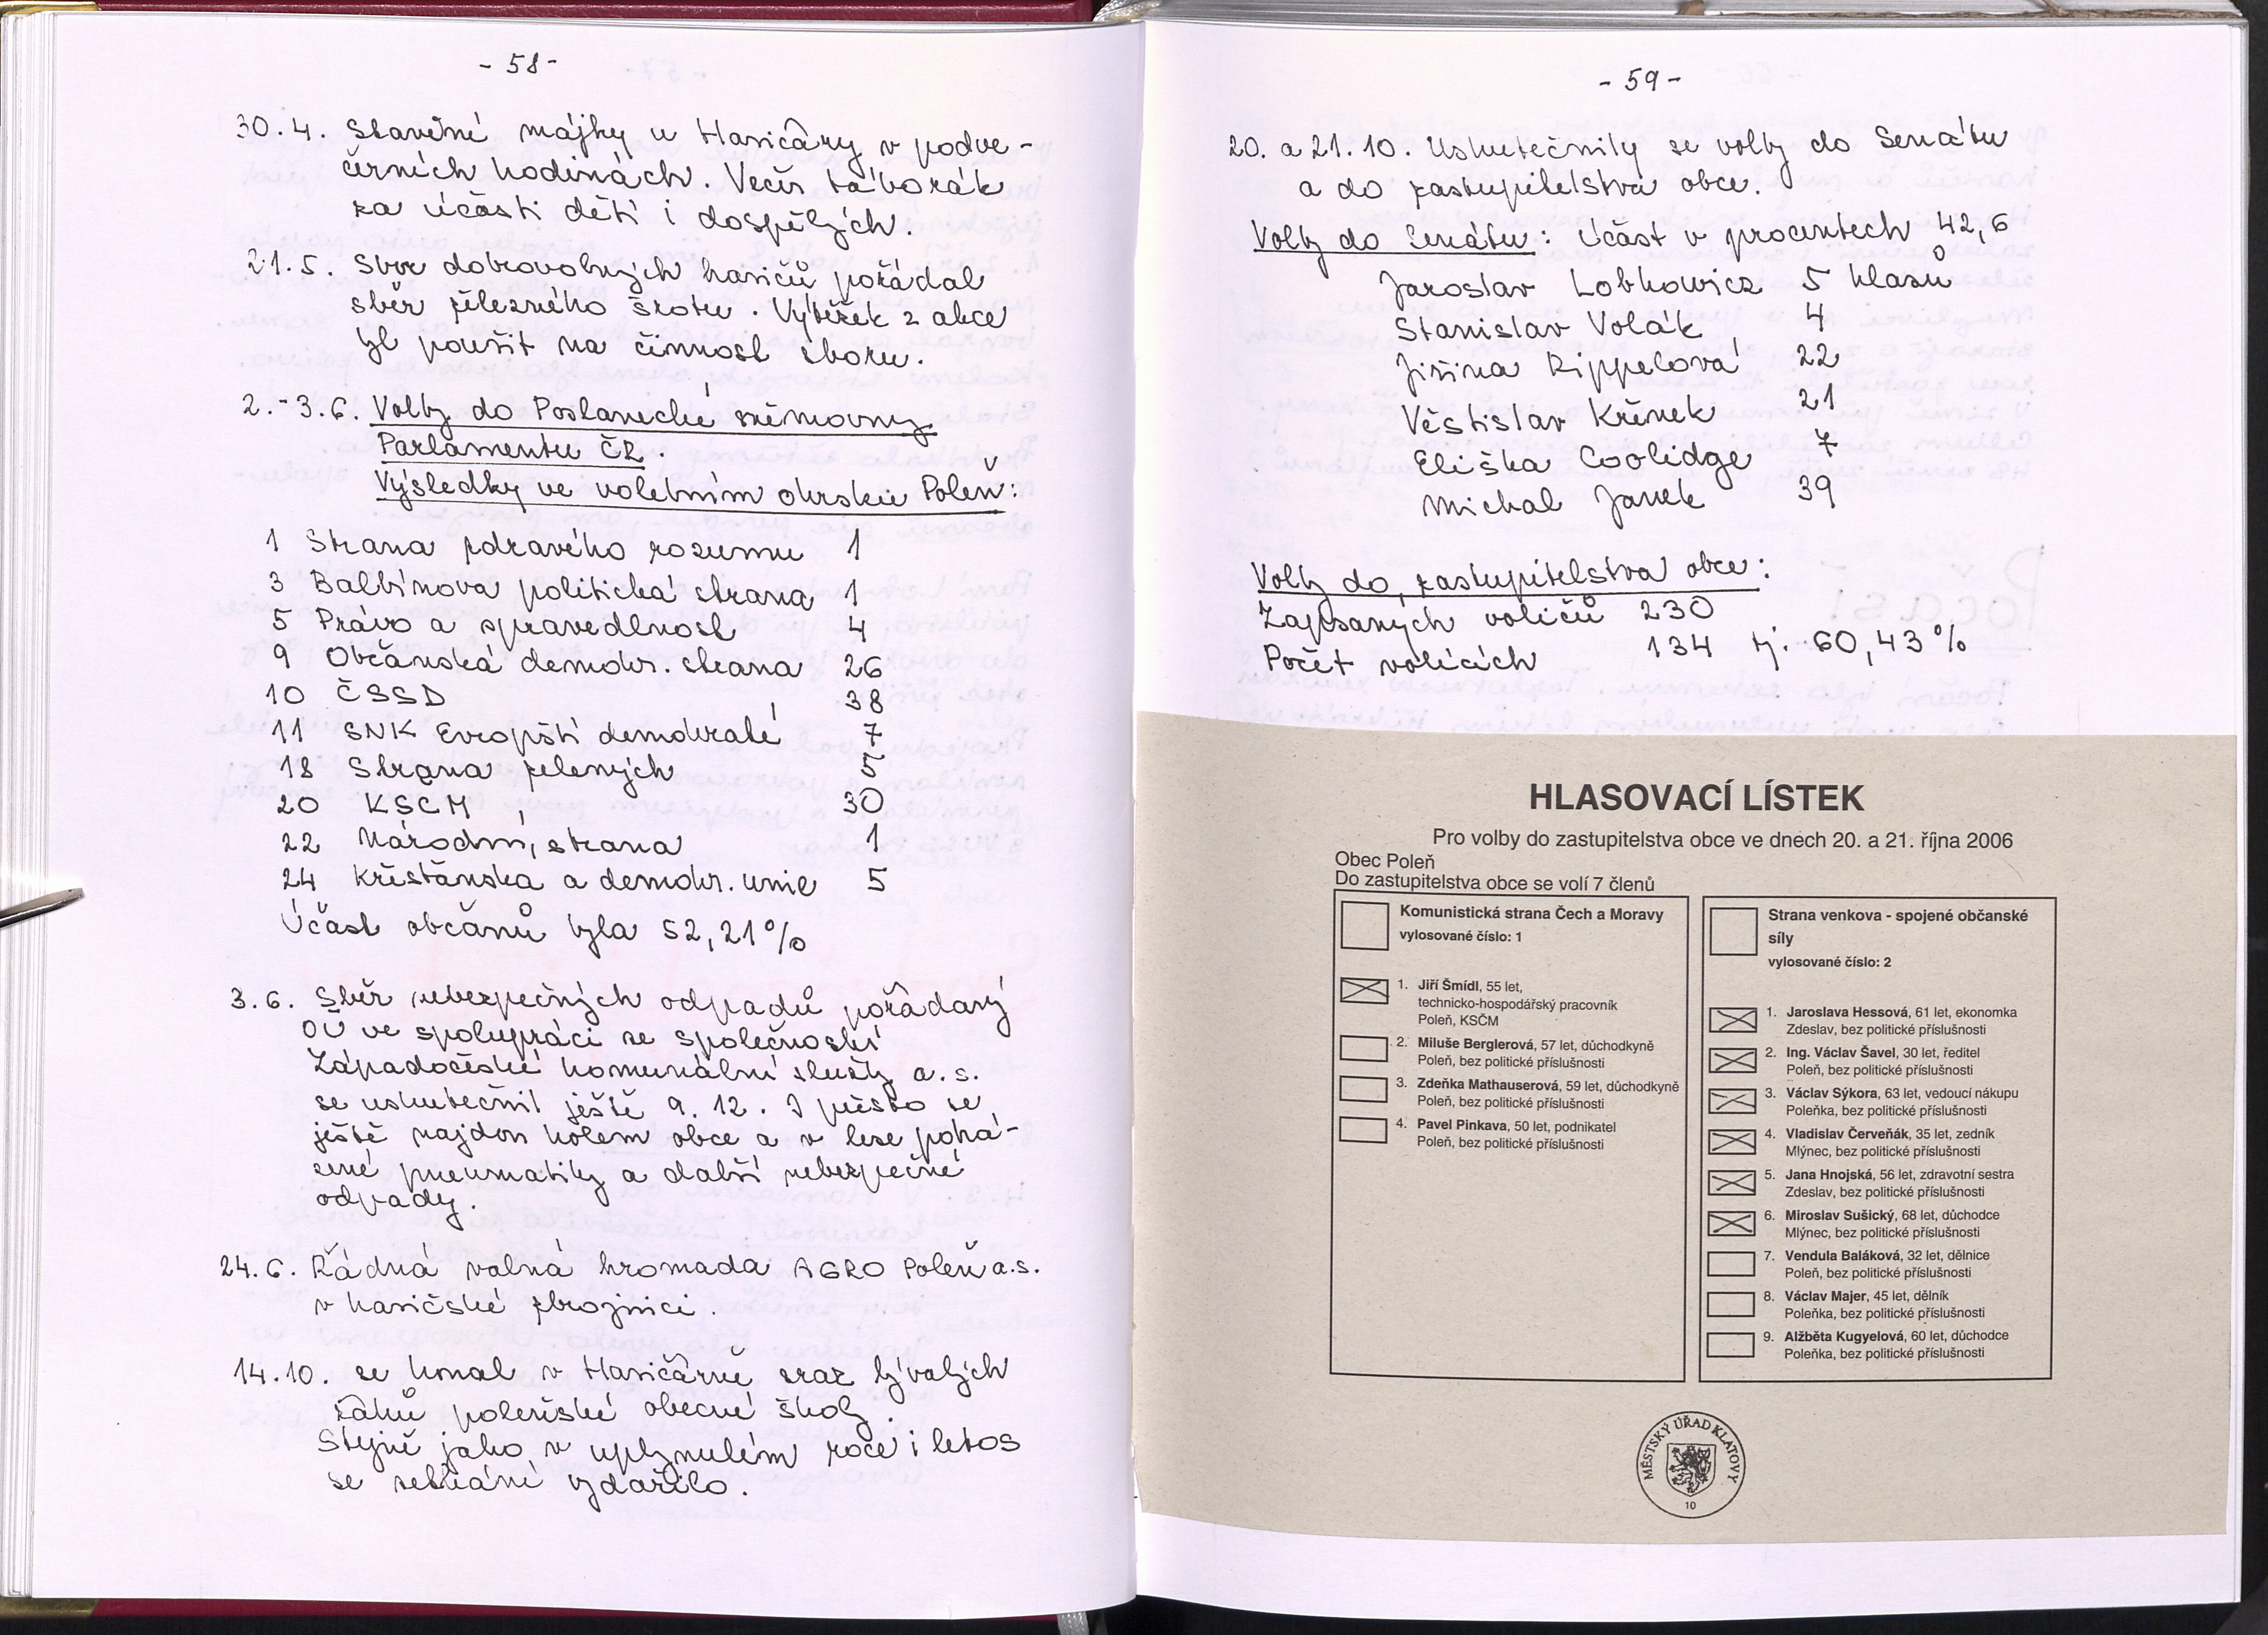 - 58 -
30.4. Stavění májky u Hasičárny v podve-
černích hodinách. Večer táborák
za účasti dětí i dospělých.
21.5. Sbor dobrovolných hasičů pořádal
sběr železného šrotu. Výtěžek z akce
byl použit na činnost sboru.
2.-3.6. Volby do Poslanecké sněmovny
Parlamentu ČR.
Výsledky ve volebním okrsku Poleň:
1 Strana zdravého rozumu 1
3 Balbínova politická strana 1
5 Právo a spravedlnost 4
9 Občanská demokr. strana 26
10 ČSSD 38
11 SNK Evropští demokraté 7
18 Strana zelených 5
20 KSČM 30
22 Národní strana 1
24 Křesťánska a demokr. unie 5
Účast občanů byla 52,21%
3.6. Sběr nebezpečných odpadů pořádaný
OÚ ve spolupráci se společností
Západočeské komunální služby a.s.
se uskutečnil ještě 9.12. I přesto se
ještě najdou kolem obce a v lese poha-
zené pneumatiky a další nebezpečné
odpady.
24.6. Řádná valná hromada AGRO Poleň a.s.
v hasičské zbrojnici.
14.10. se konal v Hasičárně sraz bývalých
žáků poleňské obecné školy.
Stejně jako v uplynulém roce i letos
se setkání vydařilo.
- 59 -
20. a 21.10. Uskutečnily se volby do Senátu
a do zastupitelstva obce.
Volby do Senátu: účast v procentech 42,6
Jaroslav Lobkowicz 5 hlasů
Stanislav Volák 4
Jiřina Rippelová 22
Věstislav Křenek 21
Eliška Coolidge 7
Michal Janek 39
Volby do zastupitelstva obce:
Zapsaných voličů 230
Počet volících 134 tj. 60,43%
HLASOVACÍ LÍSTEK
Pro volby do zastupitelstva obce ve dnech 20. a 21. října 2006
Obec Poleň
Do zastupitelstva obce se volí 7 členů
Komunistická strana Čech a Moravy
vylosované číslo: 1
1. Jiří Šmídl, 55 let,
technicko-hospodářský pracovník
Poleň, KSČM
2. Miluše Berglerová, 57 let, důchodkyně
Poleň, bez politické příslušnosti
3. Zdeňka Mathauserová, 59 let, důchodkyně
Poleň, bez politické příslušnosti
4. Pavel Pinkava, 50 let, podnikatel
Poleň, bez politické příslušnosti
Strana venkova - spojené občanské
síly
vylosované číslo: 2
1. Jaroslava Hessová, 61 let, ekonomka
Zdeslav, bez politické příslušnosti
2. Ing. Václav Šavel, 30 let, ředitel
Poleň, bez politické příslušnosti
3. Václav Sýkora, 63 let, vedoucí nákupu
Poleňka, bez politické příslušnosti
4. Vladislav Červeňák, 35 let, zedník
Mlýnec, bez politické příslušnosti
5. Jana Hnojská, 56 let, zdravotní sestra
Zdeslav, bez politické příslušnosti
6. Miroslav Sušický, 68 let, důchodce
Mlýnec, bez politické příslušnosti
7. Vendula Baláková, 32 let, dělnice
Poleň, bez politické příslušnosti
8. Václav Majer, 45 let, dělník
Poleňka, bez politické příslušnosti
9. Alžběta Kugyelová, 60 let, důchodce
Poleňka, bez politické příslušnosti
MĚSTSKÝ ÚŘAD KLATOVY
10